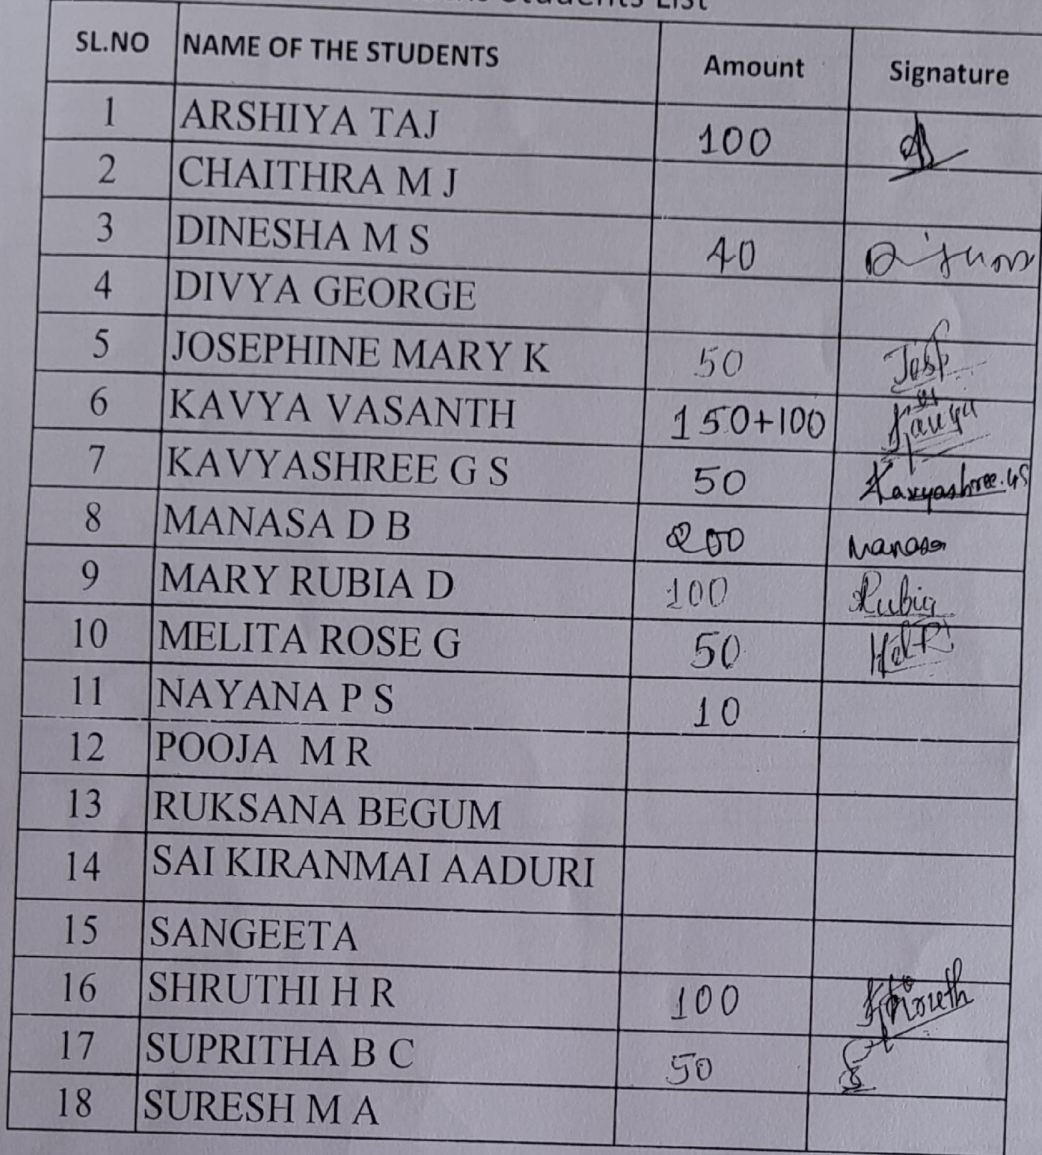 Students List
SL.NO NAME OF THE STUDENTS Amount Signature
1 ARSHIYA TAJ 100
2 CHAITHRA M J
3 DINESHA M S 40
4 DIVYA GEORGE
5 JOSEPHINE MARY K 50
6 KAVYA VASANTH 150+100 Kavya
7 KAVYASHREE G S 50 Kavyashree.GS
8 MANASA D B 200 Manasa
9 MARY RUBIA D 100 Rubia
10 MELITA ROSE G 50
11 NAYANA P S 10
12 POOJA M R
13 RUKSANA BEGUM
14 SAI KIRANMAI AADURI
15 SANGEETA
16 SHRUTHI H R 100
17 SUPRITHA B C 50
18 SURESH M A